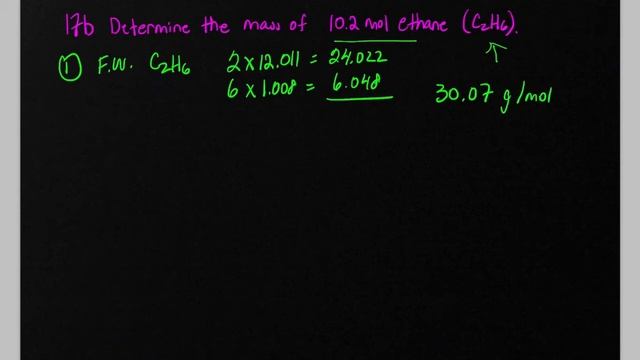 17b Determine the mass of 10.2 mol ethane (C2H6).
① F.W. C2H6 2 × 12.011 = 24.022
6 × 1.008 = 6.048
30.07 g/mol